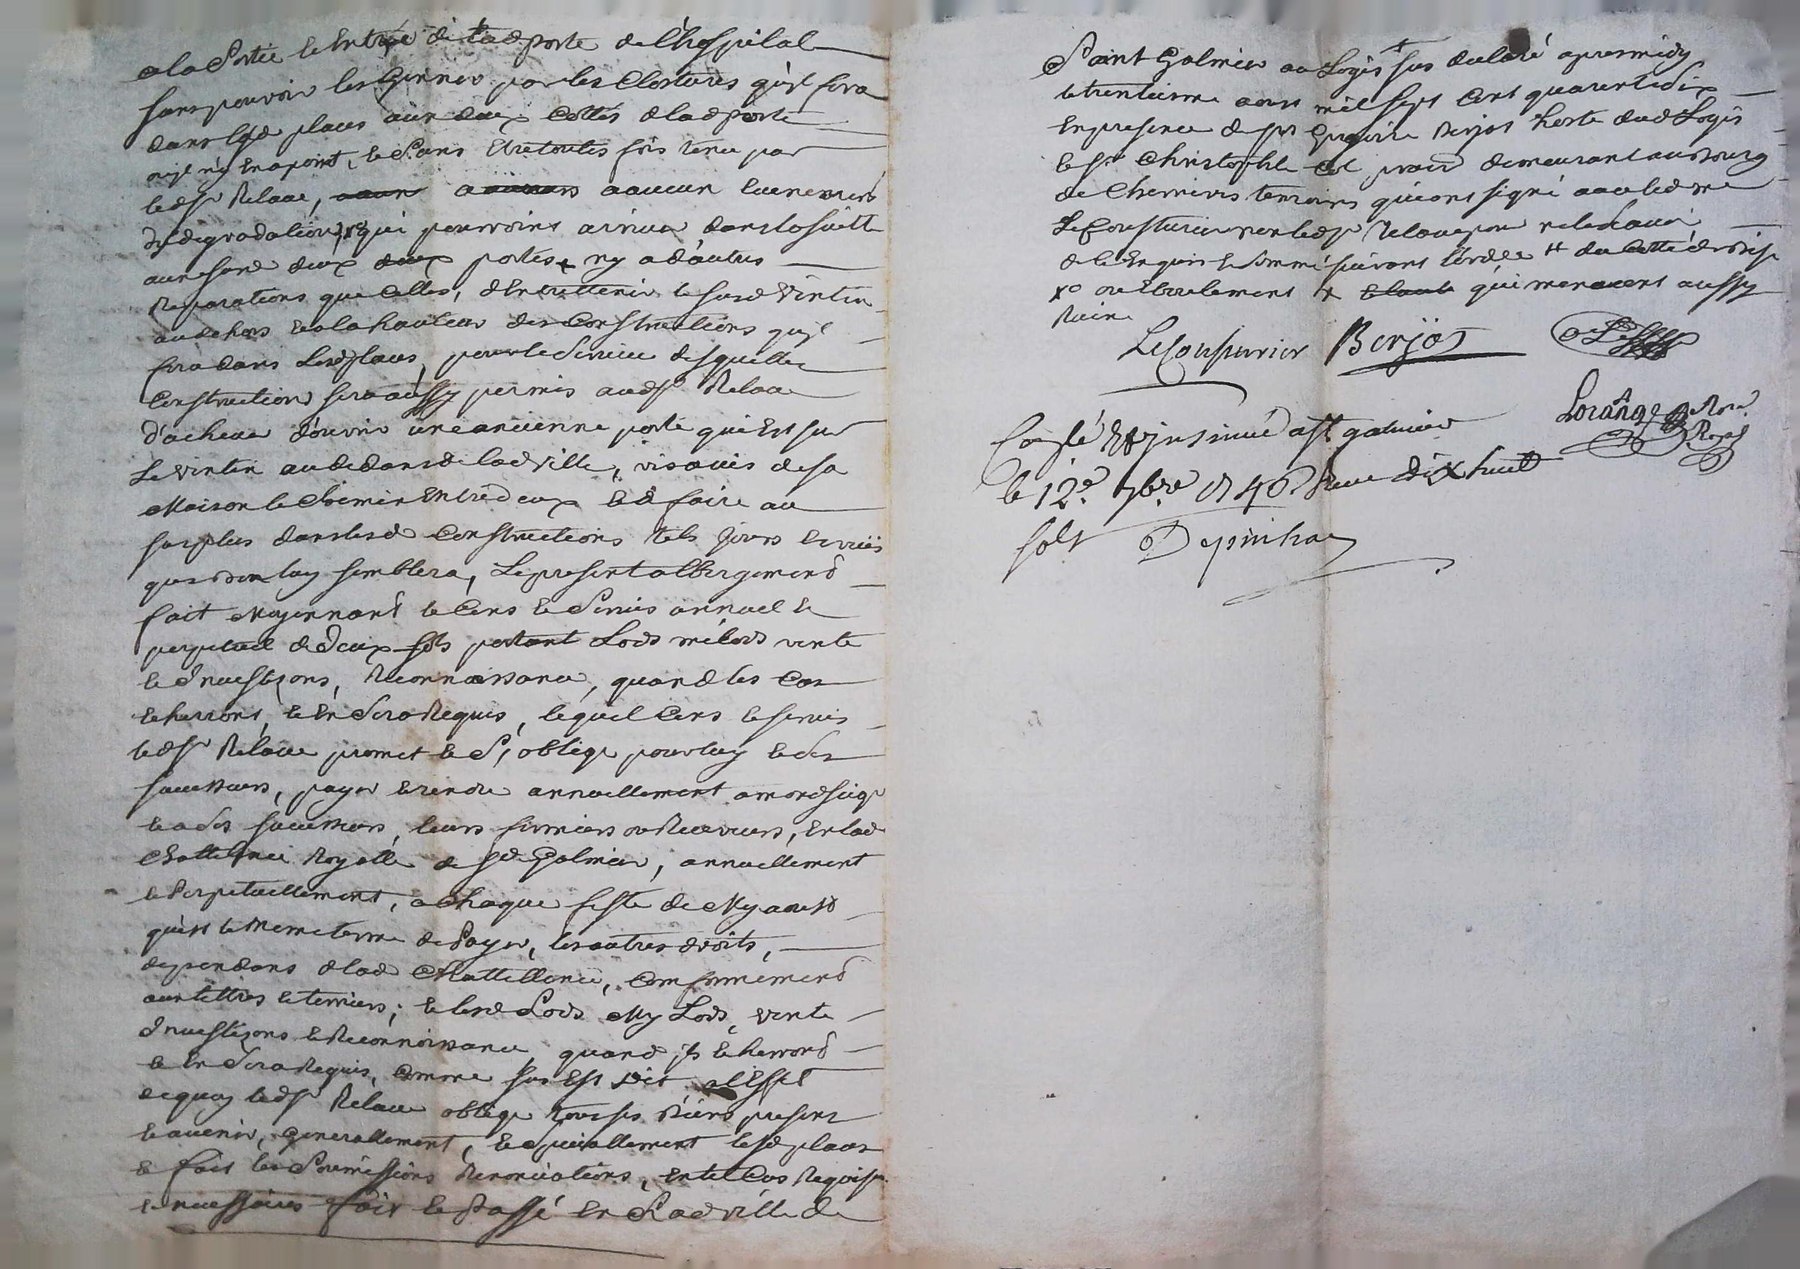 a la Sortie & Entrée de lad porte de l'hospital
sans pouvoir les Genner par les Clostures qu'il fera
dans lesd places aux deux cottés de lad porte
ou il n'y En a point, & Sans Etre toutes fois tenu par
led Sr Relave, a aucun Evenement
de degradation, qui pourroint arriver dans la suitte
aux susd deux portes ny a d'autres
Reparations que Celles, d'Entrettenir le susd Vintin
au dehors & a la hauteur des Constructions qu'il
fera dans lesd places, pour le Service desquelles
Constructions sera aussy permis aud Sr Relave
d'achever d'ouvrir une ancienne porte qui Est sur
Le vintin au dedans de lad ville, vis a vis de sa
Maison le Chemin Entre deux & de faire au
surplus dans lesd Constructions tels Jours & vües
que bon luy semblera, Le present albergement
fait Moyennant le Cens & Servis annuel &
perpetuel de Deux sols portant Lods milods vente
& Investizons, Reconnoissance, quand les Cas
Écherront, & En Sera Requis, lequel Cens & servis
led Sr Relave promet & S'oblige pour luy & Ses
successeurs, payer & rendre annuellement a mond seigr
& a Ses successeurs, leurs fermiers ou Receveurs, En lad
Chattellenie Royalle de St Galmier, annuellement
& Perpetuellement, a Chaque feste de My aoust
qu'est le meme terme de Payer, les autres droits,
dependans de lad Chattellenie, Conformement
aux tittres & terriers; & lesd Lods My Lods, vente
Investizons & Reconnoissance, quand ils Écherront
& En Sera Requis, Comme sus Est dit a l'Effet
de quoy led Sr Relave oblige tous ses Biens presens
& avenir, generallement, & Speciallement lesd places
& fait les Soumissions Renonciations, En tel Cas Requises
& necessaires fait & Passé En Lad ville de
Saint Galmier au Logis sus declaré apres midy
le trentieme aoust mil sept Cent quarente Six
En presence de Sr Berjot hoste dud Logis
& Sr Christophle demeurant au Bourg
de Chemins temoins qui ont signé avec led Me
Le Cousturier non led Sr Relave pour ne le Savoir
de ce Enquis & Sommé suivant l'ordce du Cotté de Bise
ou Eboulement qui menacent aussy
Ruine
LeCousturier Berjot
Lorange Nore Royal
Conlé & insinué a St galmier
le 12e 7bre 1746 Reçu dix huit
sols Depinhac